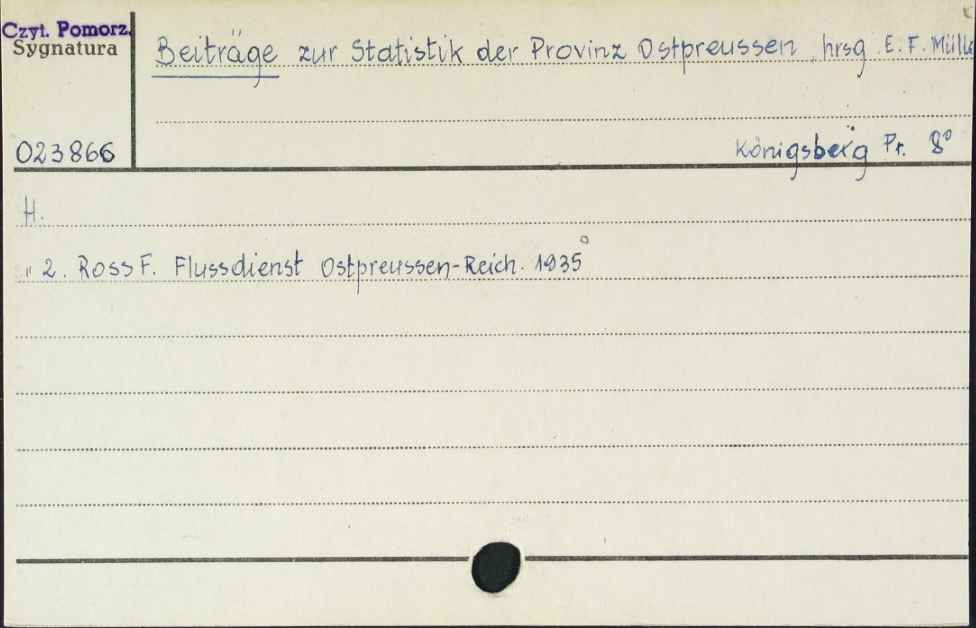 Czyt. Pomorz.
Sygnatura
Beiträge zur Statistik der Provinz Ostpreussen, hrsg. E. F. Mülle
023866
Königsberg Pr. 8°
H.
" 2. Ross F. Flussdienst Ostpreussen-Reich. 1935°